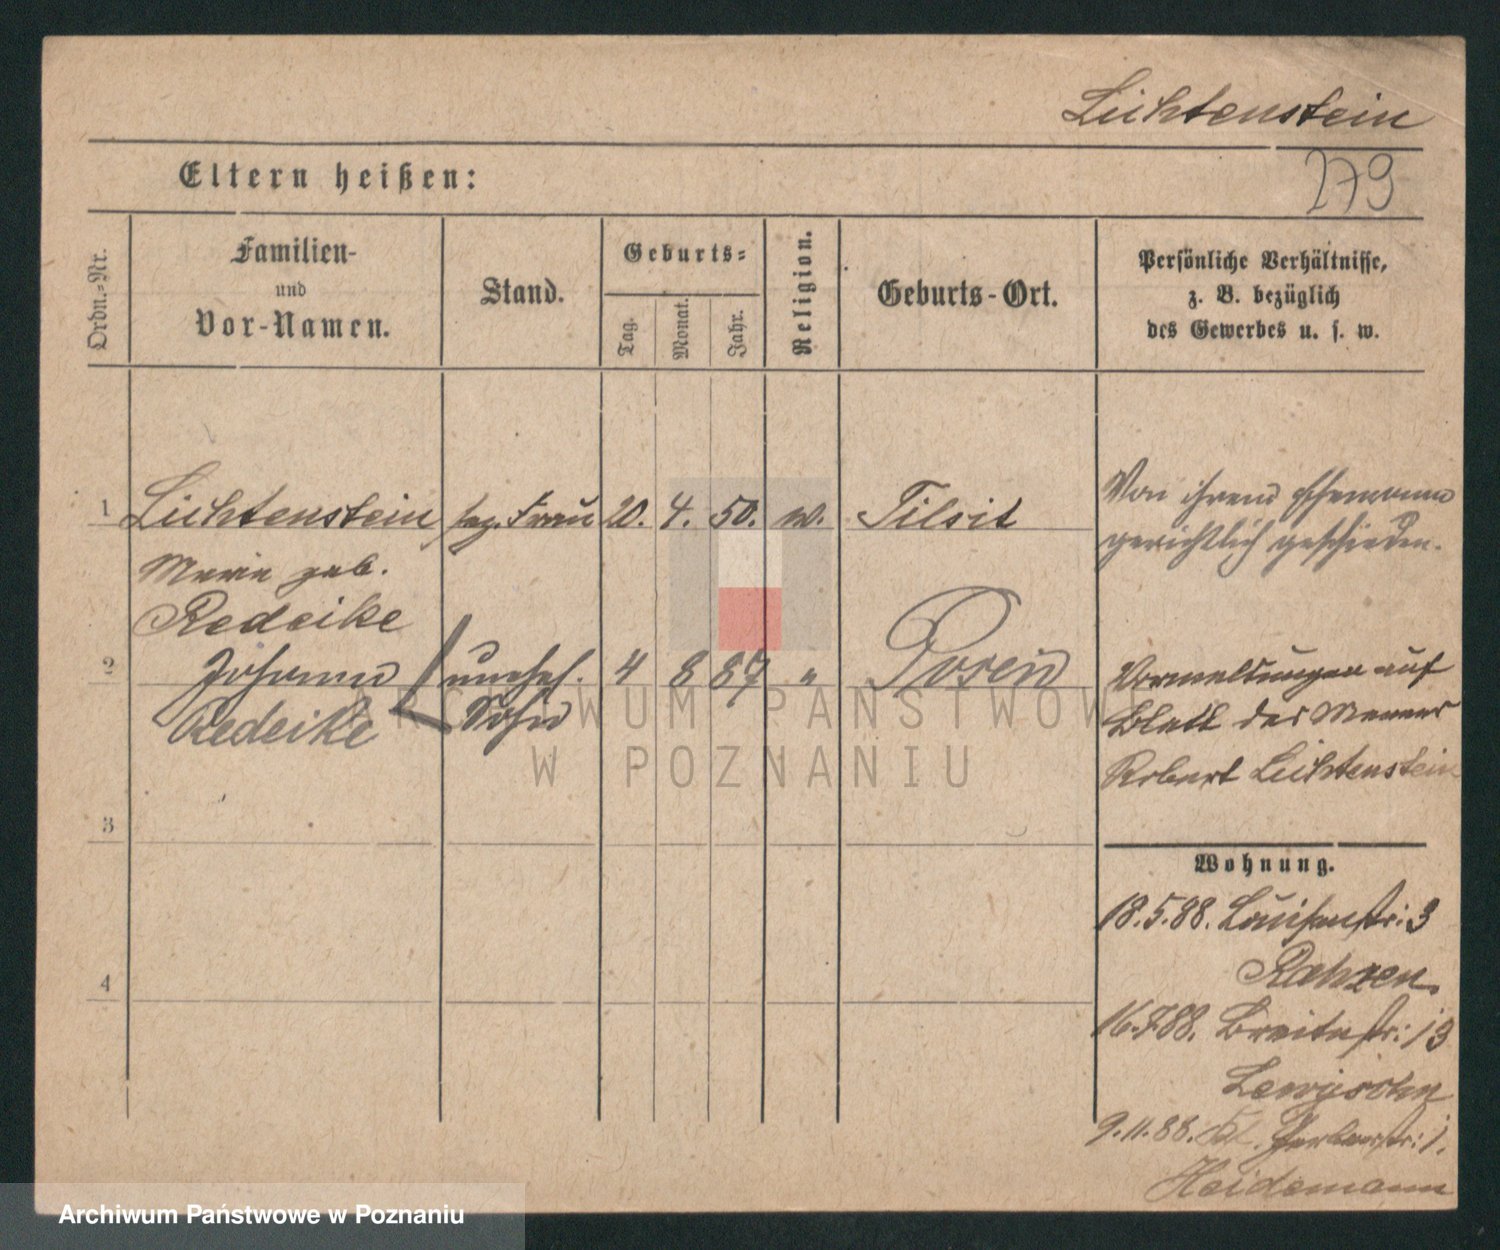 Lichtenstein
279
Eltern heißen:
Ordn.-Nr.
Familien-
und
Vor-Namen.
Stand.
Geburts-
Tag.
Monat.
Jahr.
Religion.
Geburts-Ort.
Persönliche Verhältnisse,
z. B. bezüglich
des Gewerbes u. s. w.
1 Lichtenstein sep. Frau 20. 4. 50. ev. Tilsit
Marie geb.
Redeike
Von ihrem Ehemann
gerichtlich geschieden.
2 Johann unehel. 4 8 87 " Posen
Redeike Sohn
Vormeldungen auf
Blatt des Mannes
Robert Lichtenstein
3
4
Wohnung.
18.5.88. Louisenstr: 3
Rahzen.
16.7.88. Breitestr: 13
Lewysohn
9.11.88. Gerberstr: 1.
Heidemann
ARCHIWUM PAŃSTWOWE
W POZNANIU
Archiwum Państwowe w Poznaniu